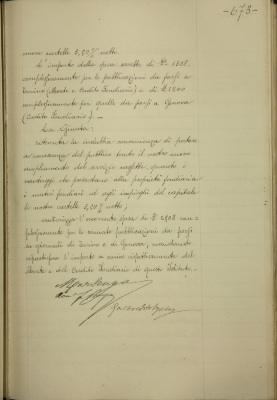 -673-
nuove cartelle 3,50% nette.
L'importo della spesa sarebbe di £ 1308.
complessivamente per le pubblicazioni da farsi a
Torino (Monte e Credito Fondiario) e di £ 1500
complessivamente per quelle da farsi a Genova
(Credito Fondiario). —
La Giunta:
ritenuta la indubbia convenienza di portare
a conoscenza del pubblico tanto il nostro nuovo
ampliamento del servizio, quanto i
vantaggi che presentano alla proprietà fondiaria
i mutui fondiari ed agli impieghi del capitale
le nostre cartelle 3,50% nette.
autorizza l'occorrente spesa di £ 2808 com-
plessivamente per le cennate pubblicazioni da farsi
su giornali di Torino e di Genova, mandando
ripartirsi l'importo a carico rispettivamente del
Monte e del Credito Fondiario di questo Istituto. —